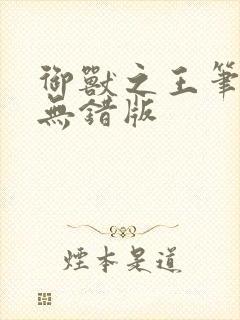 御獸之王筆
無錯版
煙本是道